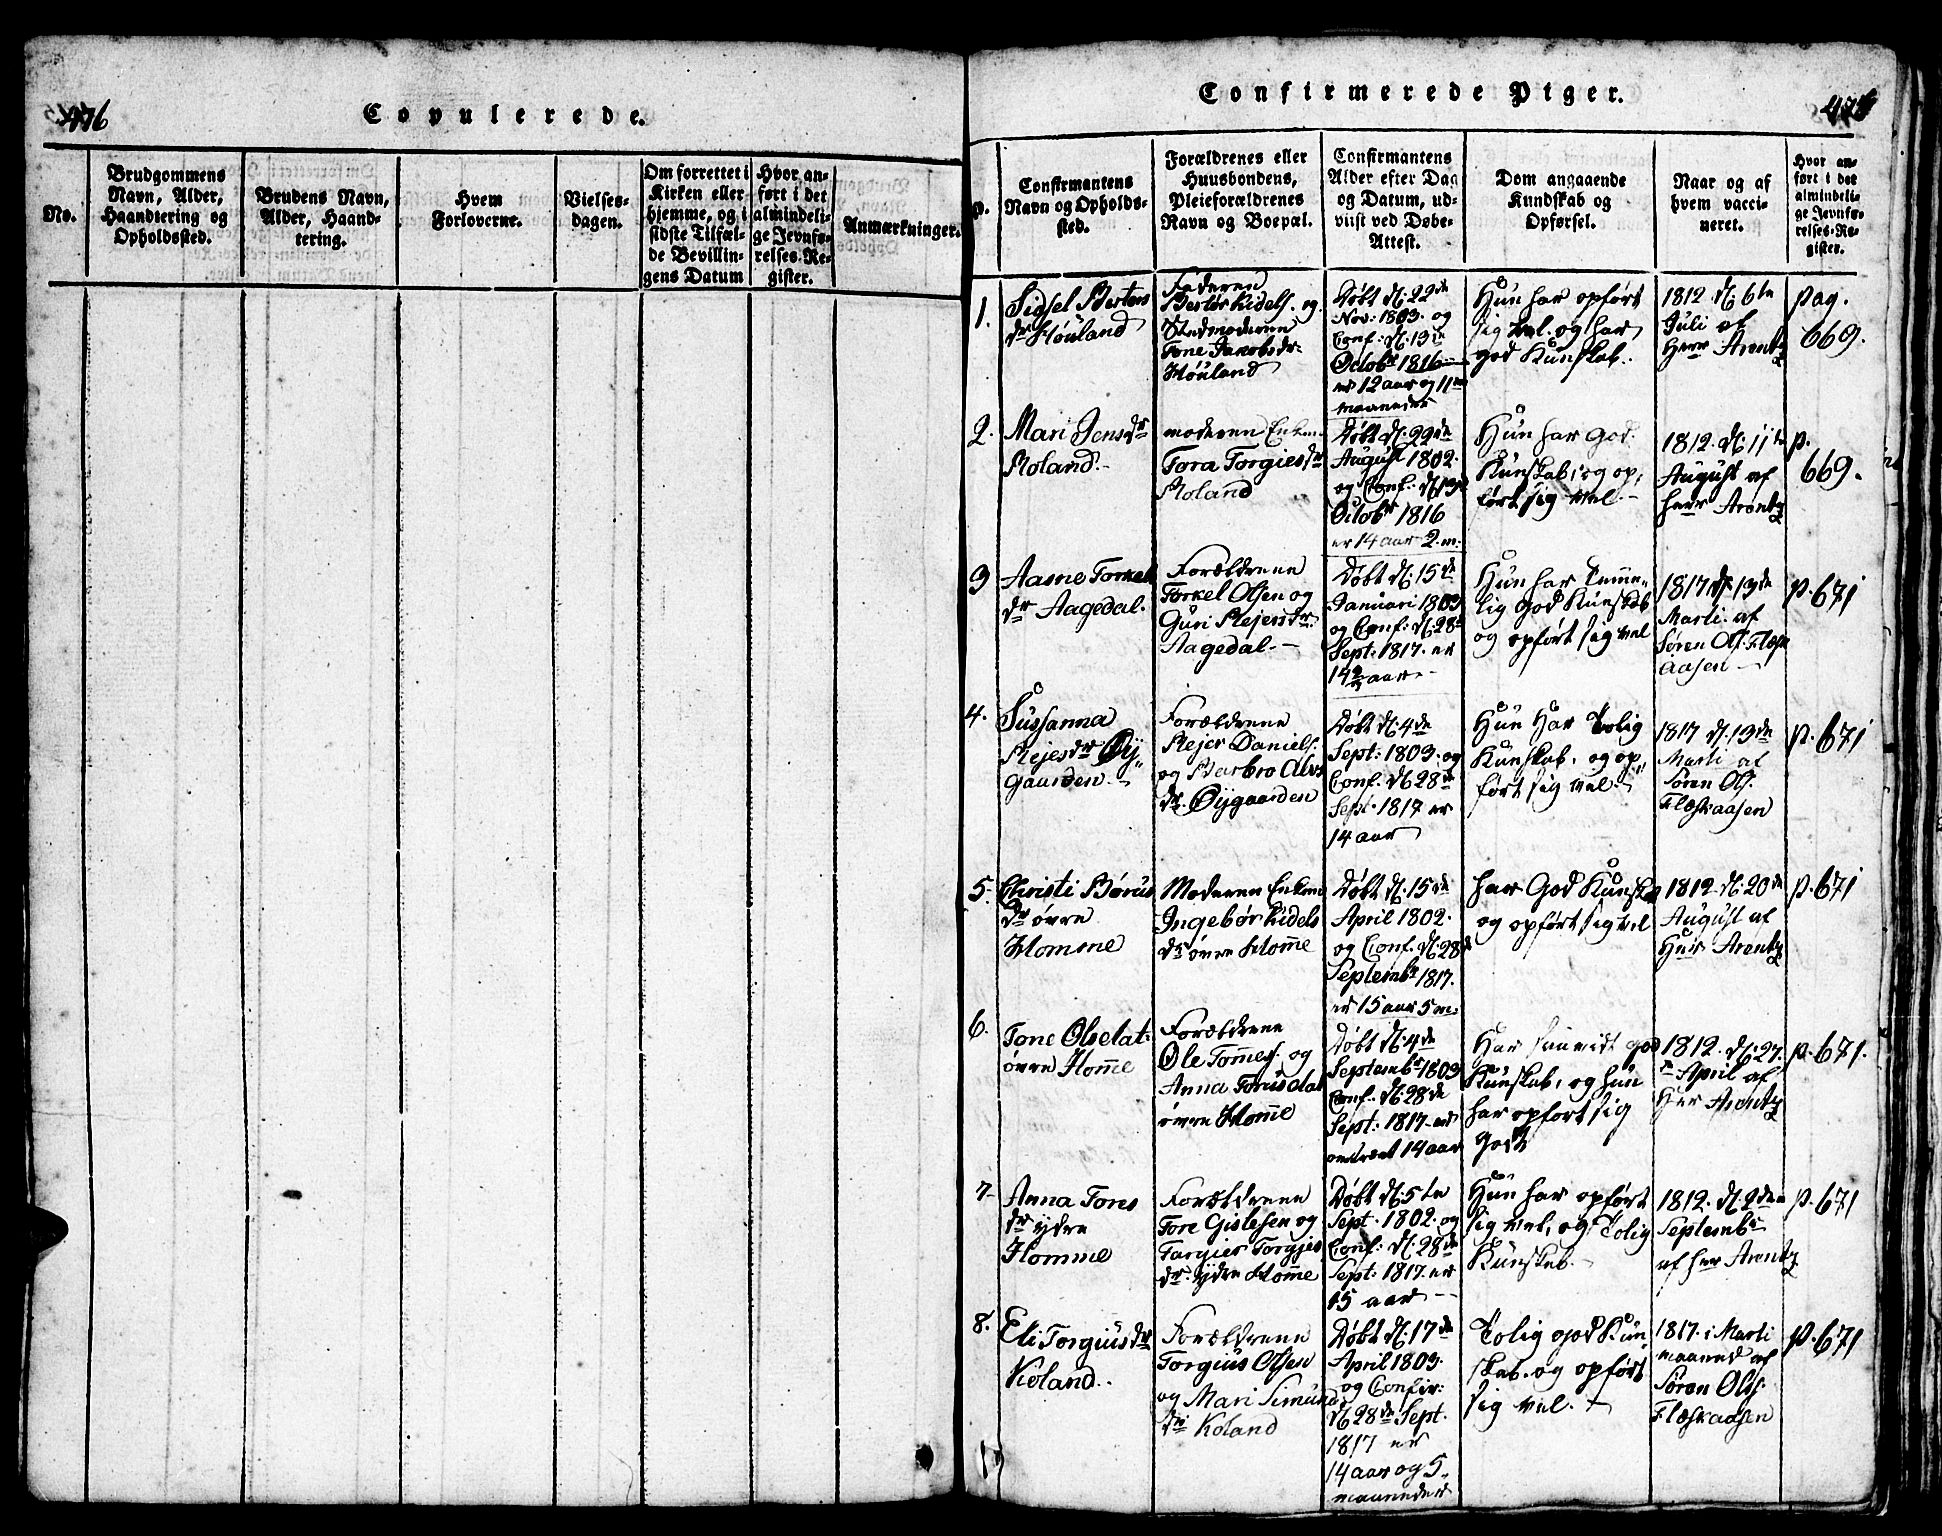 476
Copulerede.
No.
Brudgommens
Navn, Alder,
Haandtering og
Opholdssted.
Brudens Navn,
Alder, Haand-
tering.
Hvem
Forloverne.
Vielses-
dagen.
Om forrettet i
Kirken eller
hjemme, og i
sidste Tilfæl-
de Bevillin-
gens Datum
Hvor an-
ført i det
almindeli-
ge Jevnfø-
relses-Re-
gister.
Anmærkninger.
Confirmerede Piger.
Confirmantens
Navn og Opholds-
sted.
Forældrenes eller
Huusbondens,
Pleieforældrenes
Navn og Boepæl.
Confirmantens
Alder efter Dag
og Datum, ud-
viist ved Døbe-
Attest.
Dom angaaende
Kundskab og
Opførsel.
Naar og af
hvem vacci-
neret.
Hvor an-
ført i det
almindeli-
ge Jevnfø-
relses-Re-
gister.
1.
Sigsel Bertors
dr Høuland
Faderen
Bertor Kidels. og
Stedmoderen
Tone Jacobsdr.
Høuland
Døbt d. 22de
Nov: 1803. og
Conf: d. 13de
Octobr 1816
er 12 aar og 11
maaneder
Hun har opført
sig vel. og har
god Kunskab.
1812 d. 6te
Juli af
Herr Arentz
pag.
669.
2.
Mari Jensdr
Roland.
moderen Enken
Tora Torgiesdr
Roland
Døbt d. 29de
August 1802.
og Conf. d. 13
Octobr 1816
er 14 aar 2 m:
Hun har God
Kunskab, og op,
ført sig vel.
1812. d. 11te
August af
herr Arentz
p.
669.
3
Aasne Torkels
dr Aagedal.
Forældrene
Torkel Olsen og
Guri Rejersdr.
Aagedal.
Døbt d. 15de
Januari 1803
og Conf: d. 28
Sept: 1817. er
aar
Hun har Temme-
lig God Kunskab
og opført sig vel
1817 d. 13de
Marti. af
Søren Ols. Flesk
aasen
p. 671
4.
Sussanna
Rejersdr Øÿ,,
gaarden
Forældrene
Rejer Daniels.
og Barbro Alvs
dr. Øÿgaarden
Døbt d. 4de
Sept: 1803. og
Conf. d. 28de
Sept. 1817 er
14 aar
Hun Har Tolig
Kunskab, og op,,
ført sig vel.
1817 d. 13de
Marti af
Søren Ols.
Fleskaasen
p. 671
5.
Christi Børus
dr øvre
Homme
Moderen Enken
Ingebør Kidels
dr øvre Home
Døbt d. 15de
April 1802.
og Conf. d. 28
Septembr 1817.
er 15 aar 5 m.
har God Kunska
og opført sig vel
1812. d. 20de
August af
Herr Arentz
p. 671
6.
Tone Olsdat:
øvre Home
Forældrene
Ole Tomes. og
Anna Torusdat
øvre Home
Døbt d. 4de
Septembr 1803
Conf. d. 28de
Sept: 1817. er
omtrent 14 aar
Har saavidt god
Kunskab, og hun
har opført sig
Godt
1812. d. 27.
April af
Herr Arentz
p. 671.
7.
Anna Tores
dr ydre
Homme
Forældrene
Tore Gislesen og
Targier Torgjes
dr. ydre Home
Døbt d. 5te
Sept. 1802. og
Conf: d. 28de
Sept: 1817. er
15 aar
Hun har opført
sig vel, og Tolig
Kunskab.
1812. d. 2den
Septembr
af herr Arentz
p. 671
8.
Eli Torgiusdr
Koland.
Forældrene
Torgius Olsen
og Mari Simuns
dr Koland
Døbt d. 17de
April 1803.
og Confir:
d. 28de Sept.
1817 er
14 aar og 5.
maaneder
Tolig god Kun,
skab. og opført
sig vel.
1817. i Marti
maaned af
Søren Ols.
Fleskaasen
p. 671